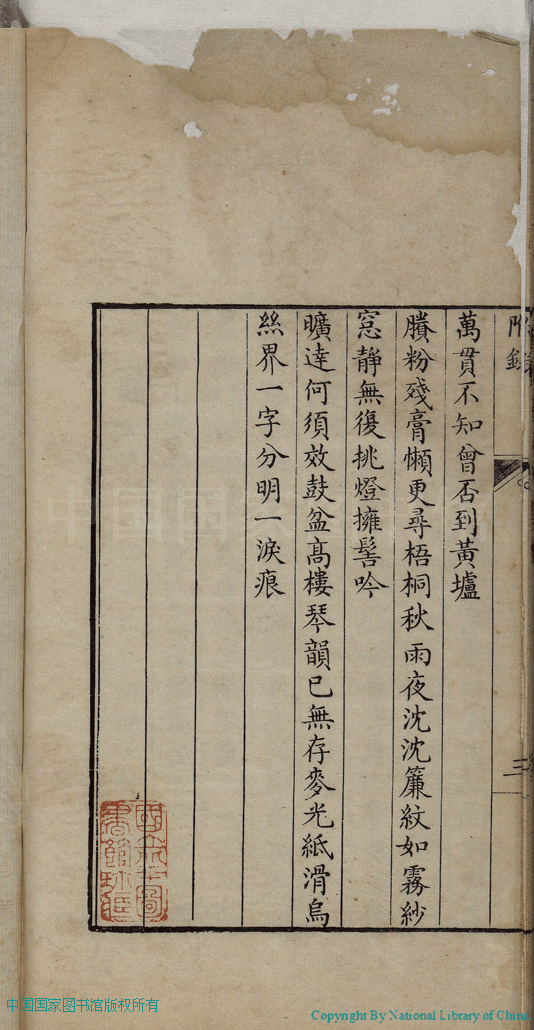 附錄
三
萬貫不知曾否到黃壚
賸粉殘膏懶更尋梧桐秋雨夜沈沈簾紋如霧紗
窓靜無復挑燈擁髻吟
曠達何須效鼓盆高樓琴韻已無存麥光紙滑烏
絲界一字分明一淚痕
中国国家图书馆版权所有
Copyright By National Library of China